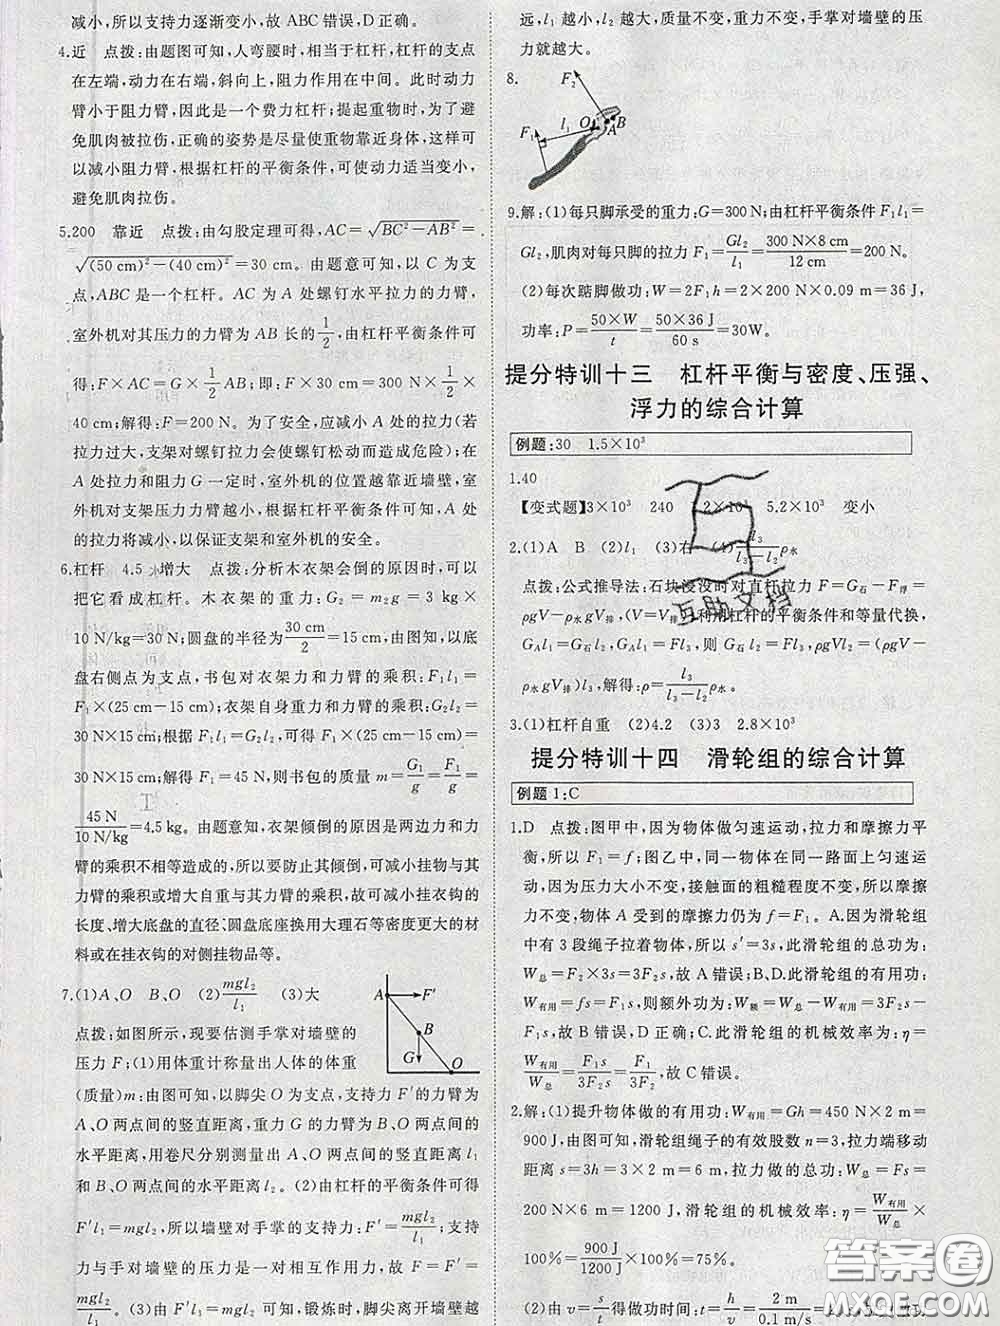 减小,所以支持力逐渐变小,故 ABC 错误,D 正确。
4.近　点拨:由题图可知,人弯腰时,相当于杠杆,杠杆的支点
在左端,动力在右端,斜向上,阻力作用在中间。此时动力
臂小于阻力臂,因此是一个费力杠杆;提起重物时,为了避
免肌肉被拉伤,正确的姿势是尽量使重物靠近身体,这样可
以减小阻力臂,根据杠杆的平衡条件,可使动力适当变小,
避免肌肉拉伤。
5.200　靠近　点拨:由勾股定理可得,AC=√(BC²-AB²)=
√((50 cm)²-(40 cm)²)=30 cm。由题意可知,以 C 为支
点,ABC 是一个杠杆。AC 为 A 处螺钉水平拉力的力臂,
室外机对其压力的力臂为 AB 长的1/2,由杠杆平衡条件可
得:F×AC=G×1/2AB;即:F×30 cm=300 N×1/2×
40 cm;解得:F=200 N。为了安全,应减小 A 处的拉力(若
拉力过大,支架对螺钉拉力会使螺钉松动而造成危险);在
A 处拉力和阻力 G 一定时,室外机的位置越靠近墙壁,室
外机对支架压力力臂越小,根据杠杆平衡条件可知,A 处
的拉力将减小,以保证支架和室外机的安全。
6.杠杆　4.5　增大　点拨:分析木衣架会倒的原因时,可以
把它看成杠杆。木衣架的重力:G₂=m₂g=3 kg×
10 N/kg=30 N;圆盘的半径为30 cm/2=15 cm,由图知,以底
盘右侧点为支点,书包对衣架力和力臂的乘积:F₁l₁=
F₁×(25 cm-15 cm);衣架自身重力和力臂的乘积:G₂l₂=
30 N×15 cm;根据 F₁l₁=G₂l₂,可得 F₁×(25 cm-15 cm)=
30 N×15 cm;解得 F₁=45 N,则书包的质量 m=G₁/g=F₁/g=
45 N/10 N/kg=4.5 kg。由题意知,衣架倾倒的原因是两边力和力
臂的乘积不相等造成的,所以要防止其倾倒,可减小挂物与其
力臂的乘积或增大自重与其力臂的乘积,故可减小挂衣钩
的长度、增大底盘的直径、圆盘底座换用大理石等密度更大的材
料或在挂衣钩的对侧挂物品等。
7.(1)A、O　B、O　(2)mgl₂/l₁　(3)大
点拨:如图所示,现要估测手掌对墙壁的
压力 F;(1)用体重计称量出人体的体重
(质量)m:由图可知,以脚尖 O 为支点,支持力 F′的力臂为
A、O 两点间的竖直距离,重力 G 的力臂为 B、O 两点间的
水平距离,用卷尺分别测量出 A、O 两点间的竖直距离 l₁
和 B、O 两点间的水平距离 l₂。(2)由杠杆的平衡条件可得
F′l₁=mgl₂,所以墙壁对手掌的支持力:F′=mgl₂/l₁;支持
力与手对墙壁的压力是一对相互作用力,故 F=F′=
mgl₂/l₁。(3)由 F=mgl₂/l₁可知,锻炼时,脚尖离开墙壁越
A
F′
B
G
O
远,l₁越小,l₂越大,质量不变,重力不变,手掌对墙壁的压
力就越大。
8.
F₂
F₁
l₁
O
B
A
9.解:(1)每只脚承受的重力:G=300 N;由杠杆平衡条件 F₁l₁=
Gl₂,肌肉对每只脚的拉力 F₁=Gl₂/l₁=300 N×8 cm/12 cm=200 N。
(2)每次踮脚做功:W=2F₁h=2×200 N×0.09 m=36 J,
功率:P=50×W/t=50×36 J/60 s=30W。
提分特训十三　杠杆平衡与密度、压强、
浮力的综合计算
例题:30　1.5×10³
1.40
【变式题】3×10³　240　5.2×10³　变小
2.(1)A　B　(2)l₁　(3)右　(4)l₃/(l₃-l₂)ρ水
点拨:公式推导法:石块浸没时对直杆拉力 F=G石-F浮=
ρgV-ρ水gV排,利用杠杆的平衡条件和等量代换,
G_A l₁=Gl₃,G_A l₁=Fl₃,则 G石l₂=Fl₃,ρgVl₂=(ρgV-
ρ水gV排)l₃,解得:ρ=l₃/(l₃-l₂)ρ水。
3.(1)杠杆自重　(2)4.2　(3)3　2.8×10³
提分特训十四　滑轮组的综合计算
例题 1:C
1.D　点拨:图甲中,因为物体做匀速运动,拉力和摩擦力平
衡,所以 F₁=f;图乙中,同一物体在同一路面上匀速运
动,因为压力大小不变,接触面的粗糙程度不变,所以摩擦
力不变,物体 A 受到的摩擦力仍为 f=F₁。A.因为滑轮组
中有 3 段绳子拉着物体,所以 s′=3s,此滑轮组的总功为:
W总=F₂×3s=3F₂s,故 A 错误;B、D.此滑轮组的有用功:
W有用=fs=F₁s,则额外功为:W额=W总-W有用=3F₂s-
F₁s,故 B 错误,D 正确;C.此滑轮组的机械效率为:η=
W有用/W总=F₁s/3F₂s=F₁/3F₂,故 C 错误。
2.解:(1)提升物体做的有用功:W有用=Gh=450 N×2 m=
900 J,由图可知,滑轮组绳子的有效股数 n=3,拉力端移动
距离 s=3h=3×2 m=6 m,拉力做的总功:W总=Fs=
200 N×6 m=1200 J,滑轮组的机械效率:η=W有用/W总×
100%=900 J/1200 J×100%=75%。
(2)由 v=s/t得做功时间:t=h/v=2 m/0.1 m/s=
互助文档
答案圈